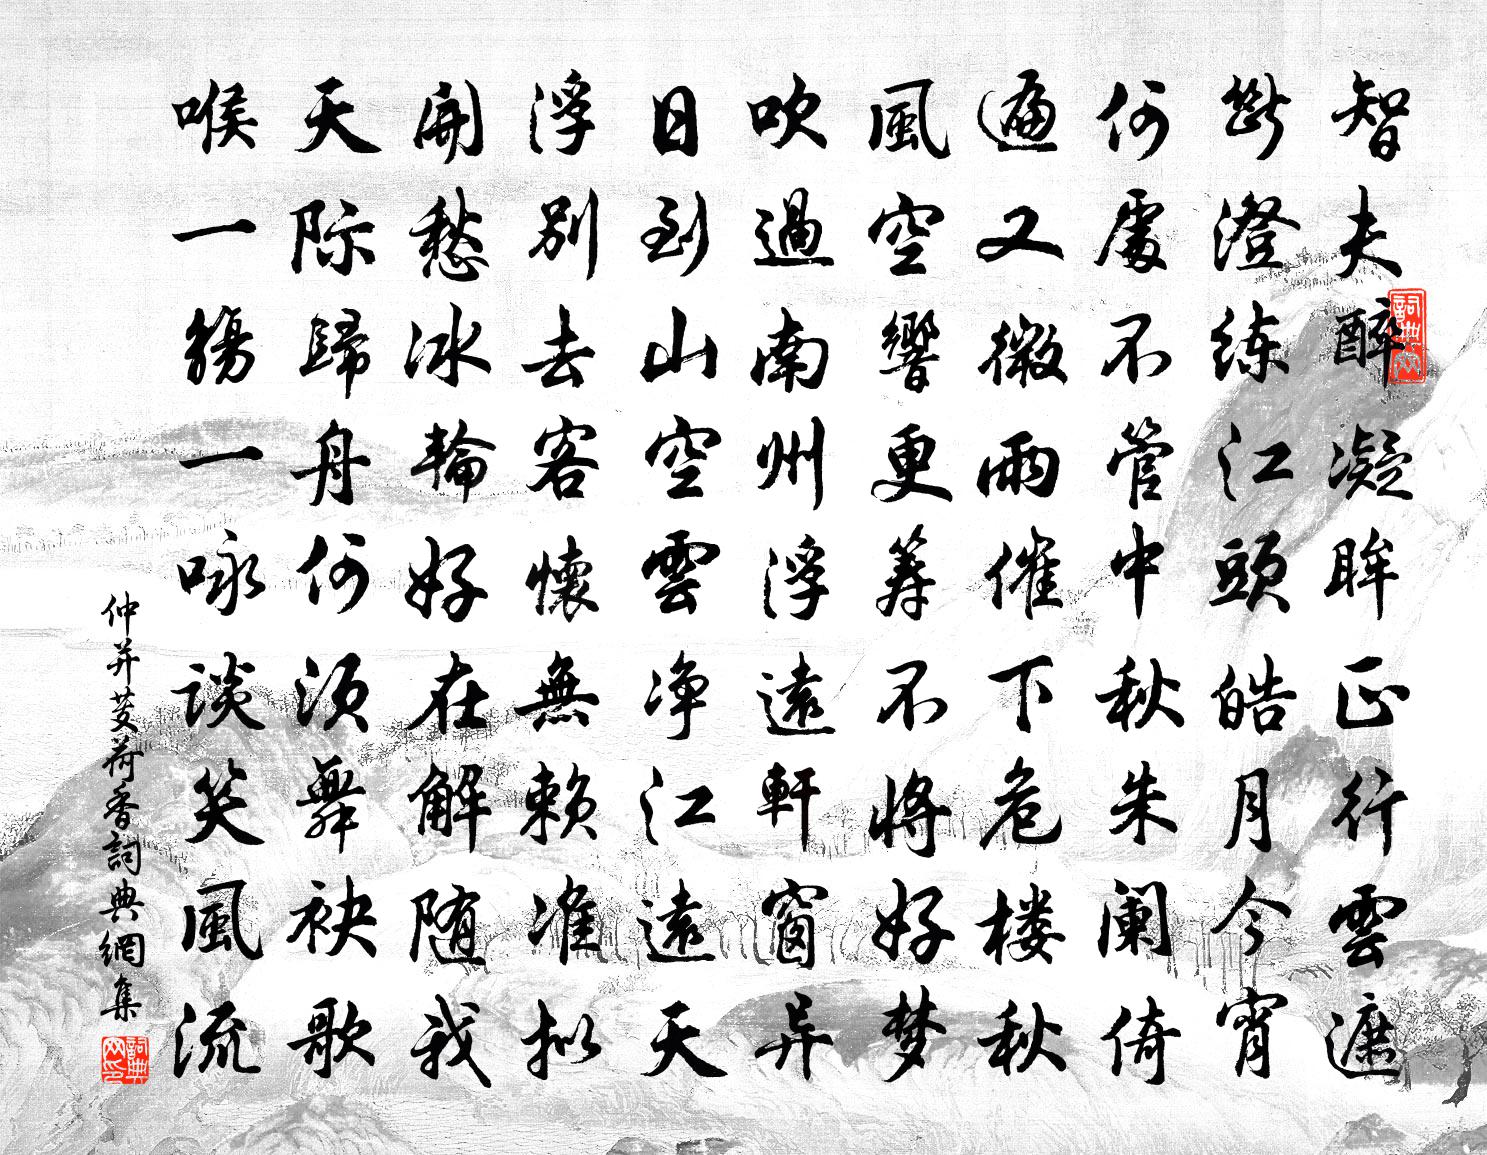 智夫醉凝眸正行雲遮
斷澄练江頭皓月今宵
何處不管中秋朱阑倚
遍又微雨催下危楼秋
風空響更筹不將好梦
吹過南州浮遠軒窗异
日到山空雲净江遠天
浮别去客懷無赖准拟
開愁冰輪好在解随我
天际歸舟何须舞袂歌
喉一觴一咏谈笑風流
仲并芰荷香詞典網集
詞典网